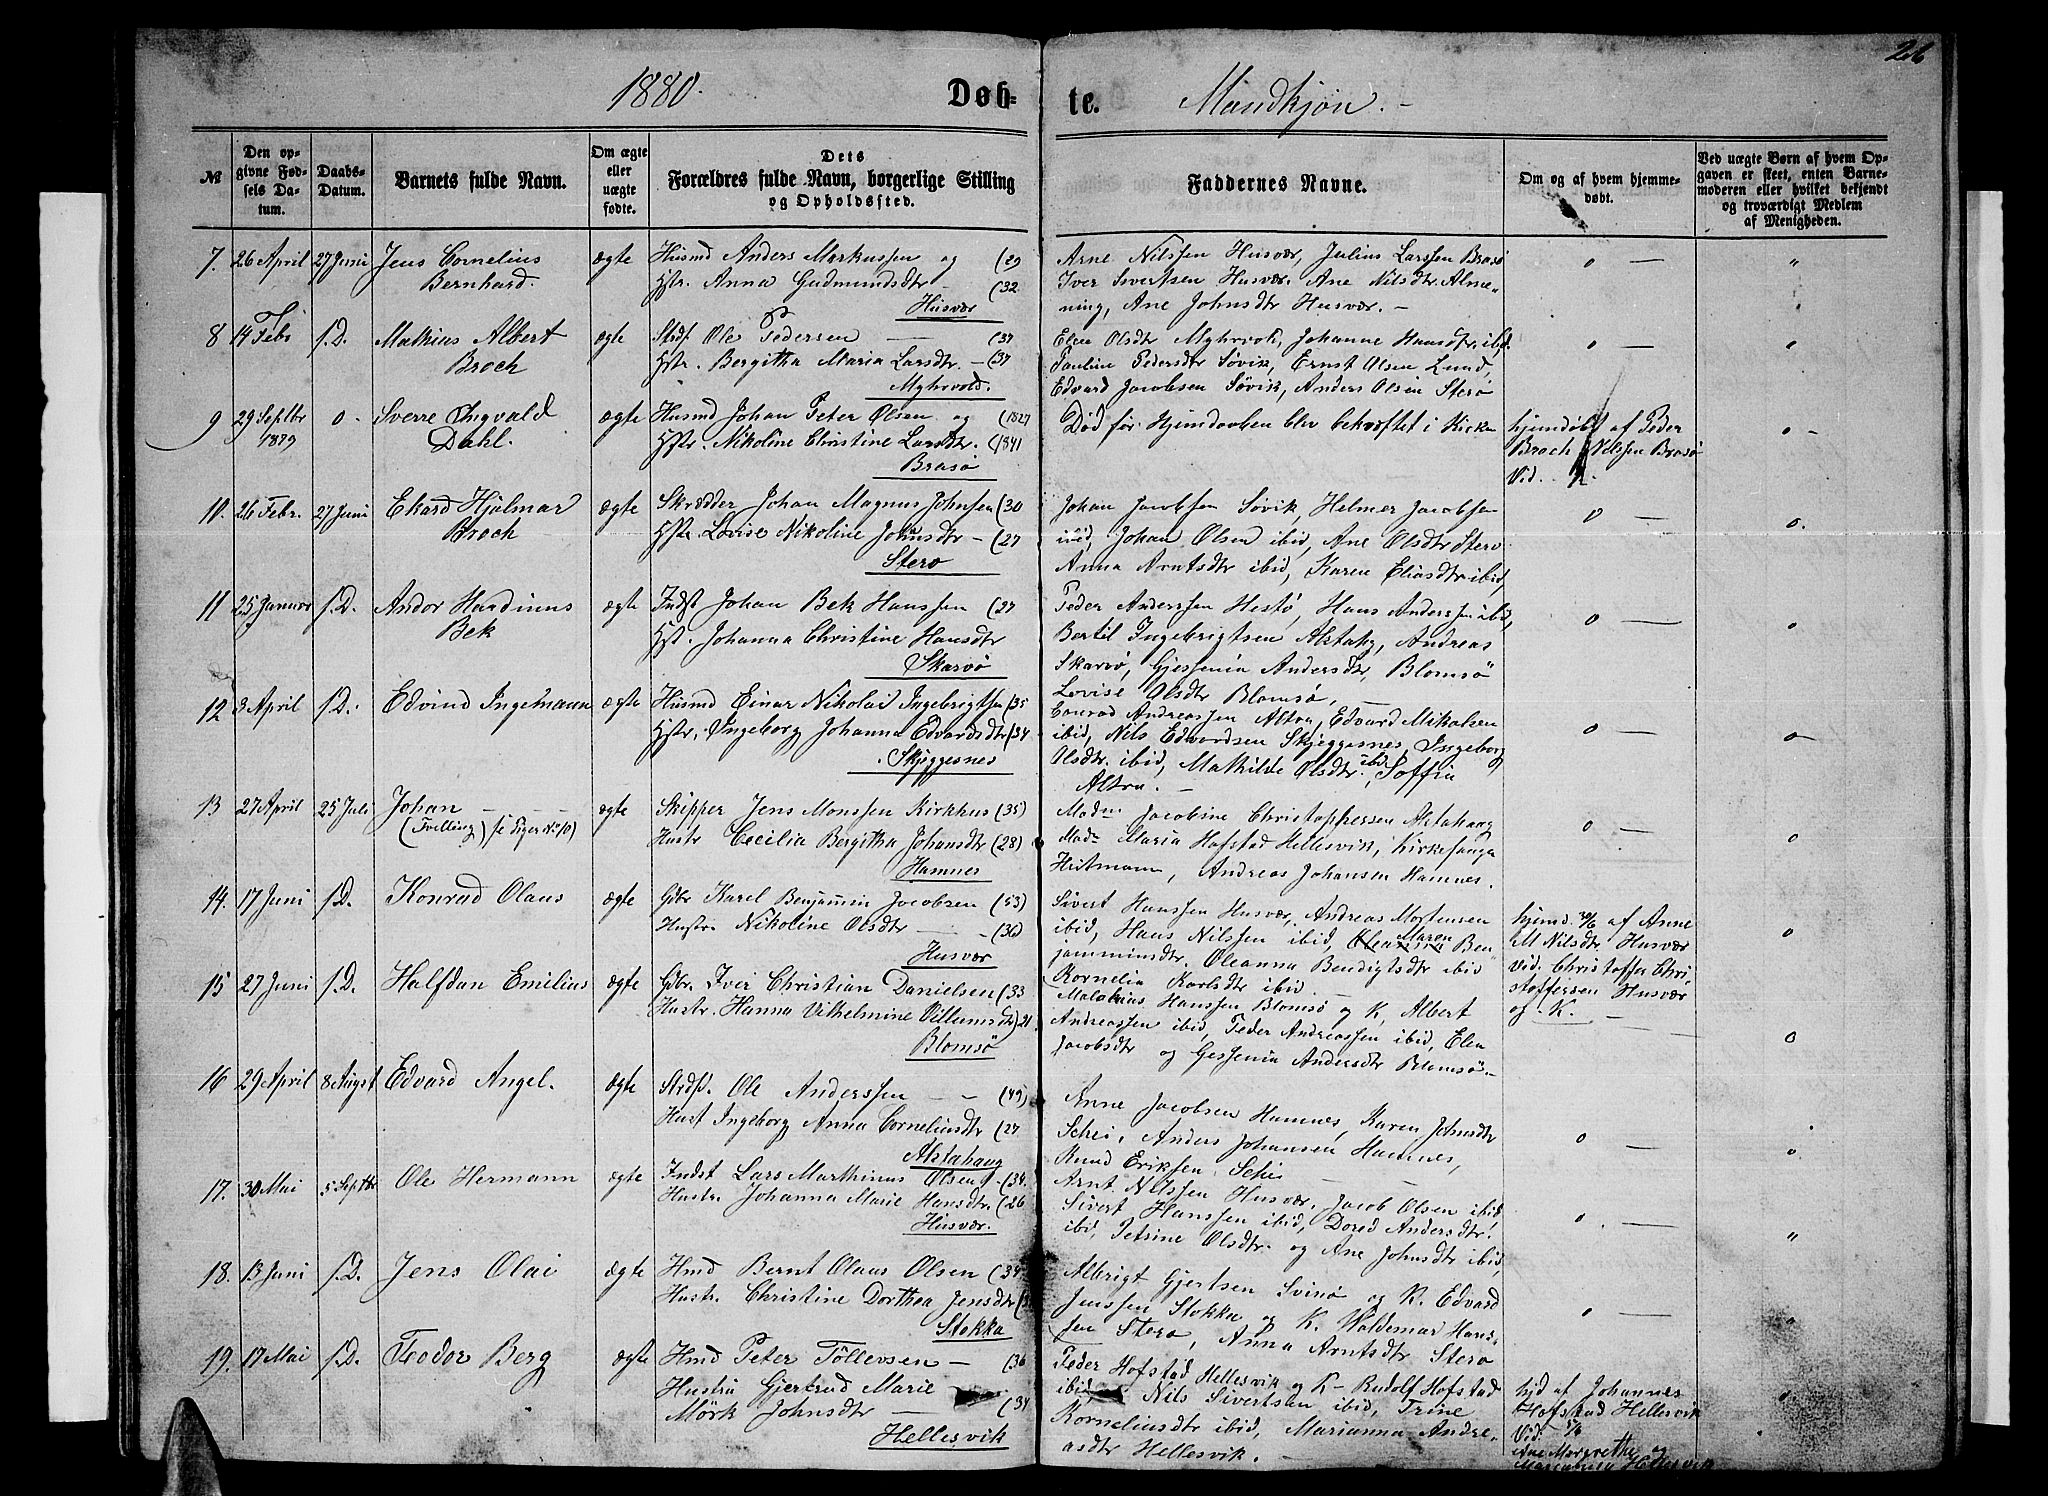 26
1880.
Døb-
te.
Mandkjøn. -
№
Den op-
givne Fød-
sels Da-
tum.
Daabs-
Datum.
Barnets fulde Navn.
Om ægte
eller
uægte
fødte.
Dets
Forældres fulde Navn, borgerlige Stilling
og Opholdssted.
Faddernes Navne.
Om og af hvem hjemme-
døbt.
Ved uægte Børn af hvem Op-
gaven er skeet, enten Barne-
moderen eller hvilket bekjendt
og troværdigt Medlem
af Menigheden.
7. 26 April 27 Juni Jens Cornelius ægte Husmd Anders Markussen og (29
Bernhard. Hstr. Anna Gudmundsdtr - (32
Husvær
Arne Nilssen Husvær, Julius Larssen Brasø o —
Iver Sivertsen Husvær. Ane Nilsdtr. Alme-
ning, Ane Johnsdtr Husvær. -
8 14 Feb. f. D. Mathias Albert ægte Strdf. Ole Pedersen (37
Broch Hstr. Bergitha Maria Larsdtr. - (37
Myhrvold.
Elen Olsdtr Myhrvold, Johanne Hansdtr. ibid. o — o
Pauline Pedersdtr Søvik, Ernst Olsen Lund,
Edvard Jacobsen Søvik, Anders Olsen Sterø
9 29 Septbr o - Sverre Ingvald ægte Husmd Johan Peter Olsen og (1827
1879 Dahl. Hstr. Nikoline Christine Larsdtr. (1841
Brasø
Død før Hjemdaaben blev bekræftet i Kirken hjemdøbt af Peder o -
Broch Nilssen Brasø
Vid.
10. 26 Febr. 27 Juni Ekard Hjalmar ægte Skrædder Johan Magnus Johnsen (30
Broch Hstr. Lovise Nikoline Johnsdtr - (27
Sterø
Johan Jacobsen Søvik, Helmer Jacobsen o — o.
ibid, Johan Olsen ibid, Ane Olsdtr Sterø
Anna Arntsdtr ibid, Karen Eliasdtr ibid,
11 25 Januar f. D. Andor Hardinus ægte Indst Johan Bek Hanssen (27
Bek Hst. Johanna Christine Hansdtr
Skarvø
Peder Anderssen Hestø, Hans Anderssen ibid, o — o
Bertil Ingebrigtsen Alstahg, Andreas
Skarvø, Gjessenia Andersdtr, Blomsø
Lovise Olsdtr Blomsø,
12 3 April f. D. Edvind Ingelmann ægte Husmd Einar Nikolai Ingebrigtsen (35
Hstr. Ingeborg Johanna Edvardsdtr (34
Skjeggesnes
Conrad Andreassen Altra, Edvard Mikalsen o — o
ibid, Nils Edvardsen Skjeggesnes, Ingeborg
Olsdtr. ibid, Mathilde Olsdtr. ibid, Soffia
Altra. -
13 27 April 25 Juli Johan - - - ægte Skipper Jens Monssen Kirkhus (35)
(Tvilling) se Piger No 10) Hustr Cecilia Bergitha Johansdtr (28)
Hamnes
Madm Jacobine Christophersen Alstahaug o — o
Madm Maria Hofstad Hellesvik, Kirkesanger
Heitmann, Andreas Johansen Hamnes.
14. 17 Juni f. D. Konrad Olaus ægte Gdbr Karel Benjamin Jacobsen (53)
Hustr. Nikoline Olsdtr - (36)
Husvær
Sivert Hanssen Husvær, Andreas Mortensen hjemd. 20/6 af Anne o
ibid, Hans Nilssen ibid, Maren Ben- M Nilsdtr. Husvær
jaminsdtr. Oleanna Bendigtsdtr ibid Vid. Christoffer Chri-
Kornelia Karlsdtr ibid stoffersen Husvær
og K.
15 27 Juni f. D. Halfdan Emilius ægte Gdbr. Iver Christian Danielsen (33
Hustr. Hanna Vilhelmine Villumsdtr) 21.
Blomsø
Malakias Hanssen Blomsø og K, Albert — o
Andreassen ibid, Peder Andreassen ibid, Elen
Jacobsdtr og Gessenia Andersdtr Blomsø -
16 29 April 8 August Edvard Angel. ægte Strdf. Ole Anderssen - - (49)
Hust Ingeborg Anna Corneliusdtr (27
Alstahaug
Anne Jacobsen Hamnes, Karen Johnsdtr o — o
Schei, Anders Johansen Hamnes,
Knud Eriksen Schei
17. 30 Mai 5 Septbr Ole Hermann ægte Indst Lars Marthinus Olsen (34.
Hustr. Johanna Marie Hansdtr. (26
Husvær.
Arnt Nilssen Husvær. Jacob Olsen ibid, o. —
Sivert Hanssen ibid, Dored Andersdtr.
ibid, Petrine Olsdtr. og Ane Johnsdtr ibid,
18. 13 Juni f. D. Jens Olai ægte Hmd Bernt Olaus Olsen (34
Hustr. Christine Dorthea Jensdtr
Stokka
Albrigt Gjertsen Svinø og K. Edvard
Jenssen Stokka og K. Waldemar Hans-
sen Sterø, Anna Arntsdtr Sterø
19. 17 Mai f. D. Teodor Berg ægte Hmd Peter Tøllevsen - (36
Hustru Gjertrud Marie
Mörk Johnsdtr — (34
Hellesvik
Peder Hofstad Hellesvik og K - Rudolf Hofstad hjd af Johannes
ibid Nils Sivertsen ibid, Trine Hofstad Hellesvik
Korneliusdtr ibid, Marianna Andre- Vid.
asdtr Hellesvik. - Ane Margrethe og
Hellesvik